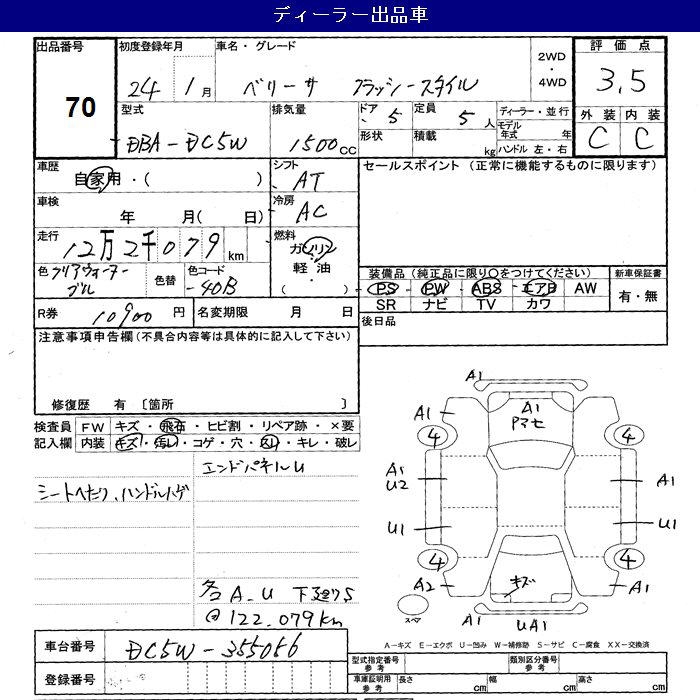 ディーラー出品車
出品番号 初度登録年月 車名・グレード 2WD ・ 4WD 評価点
70 24 1月 ベリーサ フラッシースタイル 3.5
型式 排気量 ドア 5 定員 5人 ディーラー・並行 外装 内装
DBA-DC5W 1500cc 形状 積載 kg モデル年式 年 C C
ハンドル 左・右
車歴 シフト セールスポイント (正常に機能するものに限ります)
自家用・( ) AT
車検 冷房
年 月( 日) AC
走行 燃料
12万2千079km ガソリン・軽油・( )
色 クリアウォーターブルー 色替 色コード 40B
装備品(純正品に限り○をつけてください) 新車保証書
PS PW ABS エアB AW 有・無
SR ナビ TV カワ
R券 10900円 名変期限 月 日 後日品
注意事項申告欄(不具合内容等は具体的に記入して下さい)
修復歴 有 〔箇所 〕
検査員 FW キズ・飛石・ヒビ割・リペア跡・×要
記入欄 内装 キズ・汚レ・コゲ・穴・スレ・キレ・破レ
エンドパネルU
シートへたり、ハンドルハゲ
各A.U 下廻りS
@122.079km
A1
A1 A1
Pマセ
4 4
A1 U2 A1
U1 U1
4 4
A2 キズ A1
スペア A1 UA1
A-キズ E-エクボ U-凹み W-補修跡 S-サビ C-腐食 XX-交換済
車台番号 DC5W-355056
型式指定番号 参考 類別区分番号 参考
登録番号
車庫証明用 参考 長さ cm 幅 cm 高さ cm